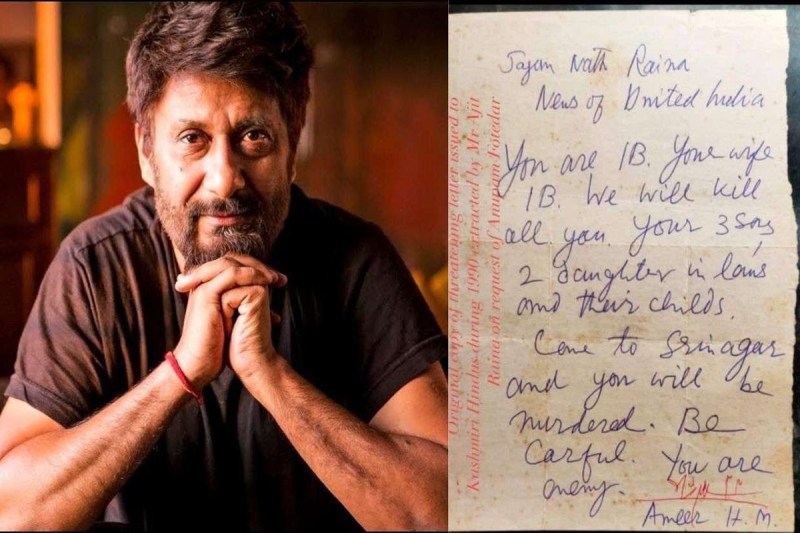 Jagan Nath Raina
News of United India
You are IB. Your wife
IB. We will kill
all you. Your 3 sons,
2 daughter in laws
and their childs.
Come to Srinagar
and you will be
murdered. Be
Carful. You are
enemy.
Ameer H.M.
Original copy of threatening letter issued to
Kashmiri Hindus during 1990 extracted by Mr Ajit
Raina on request of Anupam Fotedar